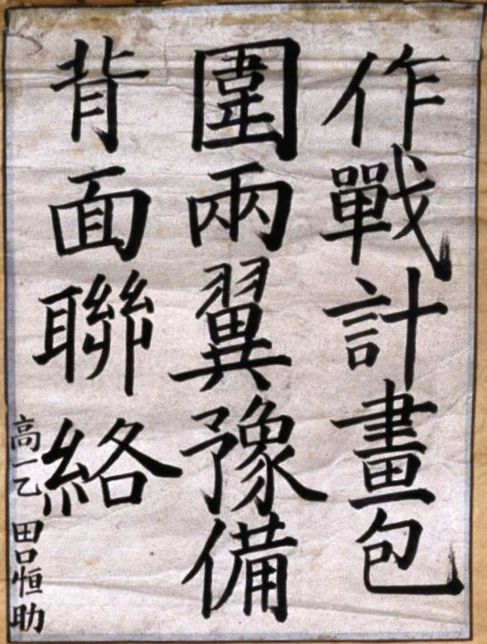 作戰計畫包
圍兩翼豫備
背面聯絡
高一乙 田口恒助